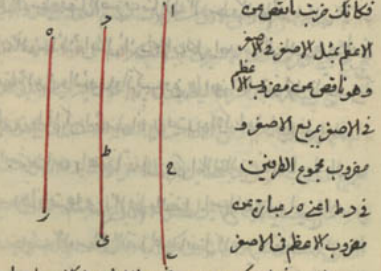 فكانك ضربت انقص من
الاعظم بمثل الاصغر في الاصغر
وهو ناقص من مضروب الاعظم
في الاصغر بربع الاصغر و
مضروب مجموع الطرفين
في د ط اعني ه ر عبارة عن
مضروب الاعظم في الاصغر
ا ح ه
ط ه
ر ى ب